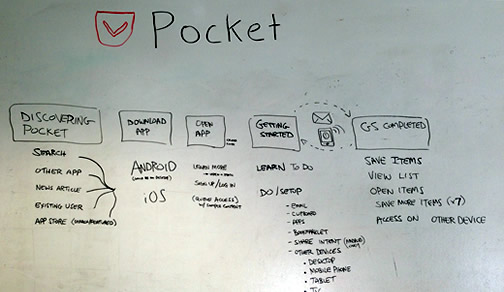 Pocket
DISCOVERING
POCKET
DOWNLOAD
APP
OPEN
APP
GETTING
STARTED
GS COMPLETED
SEARCH
OTHER APP
NEWS ARTICLE
EXISTING USER
APP STORE
ANDROID
iOS
LEARN MORE
SIGN UP/LOG IN
(QUEUE ACCESS)
LEARN TO DO
DO/SETUP
- EMAIL
- APPS
- BOOKMARKLET
- SHARE INTENT (MOBILE)
- OTHER DEVICES
• DESKTOP
• MOBILE PHONE
• TABLET
• TV
SAVE ITEMS
VIEW LIST
OPEN ITEMS
SAVE MORE ITEMS (x7)
ACCESS ON OTHER DEVICE